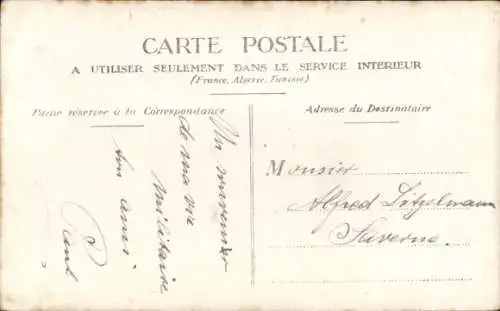 CARTE POSTALE
A UTILISER SEULEMENT DANS LE SERVICE INTERIEUR
(France, Algérie, Tunisie)
Partie réservée à la Correspondance
Adresse du Destinataire
Un souvenir
de ma vie
militaire
ton ami
Paul
Monsieur
Alfred Ditzelmann
Saverne.